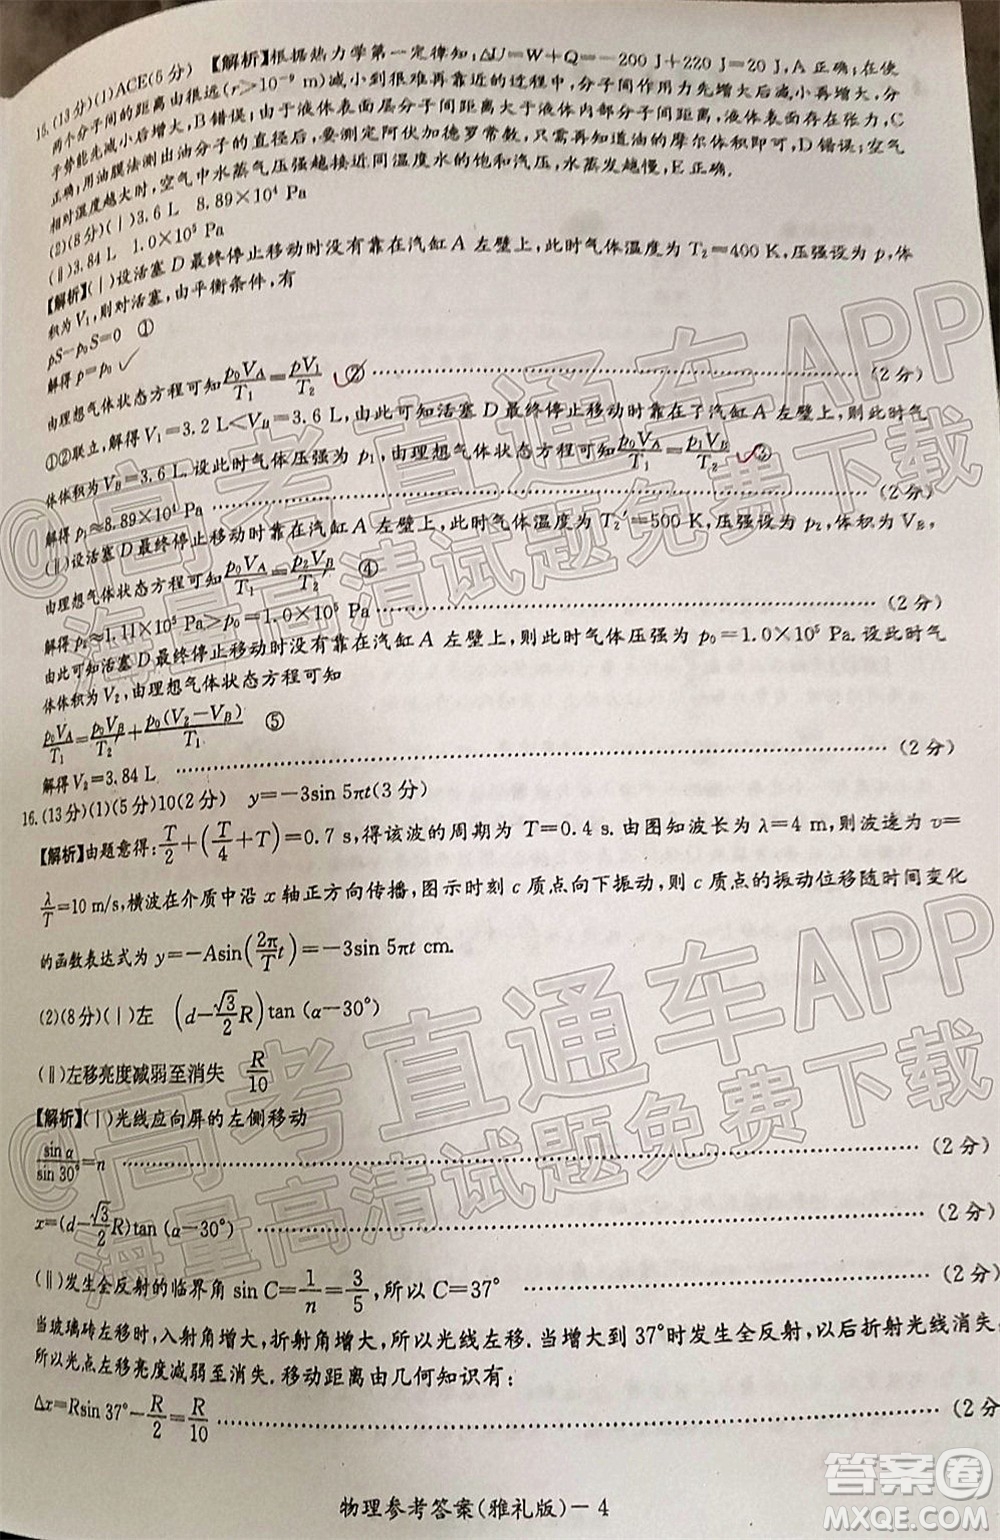 15.(13分)(1)ACE(6分) 【解析】根据热力学第一定律知:ΔU=W+Q=-200 J+220 J=20 J,A正确;在使
两个分子间的距离由很远(r>10⁻⁹ m)减小到很难再靠近的过程中,分子间作用力先增大后减小再增大,分
子势能先减小后增大,B错误;由于液体表面层分子间距离大于液体内部分子间距离,故液体表面存在张力,C
正确;用油膜法测出油分子的直径后,要测定阿伏加德罗常数,只需再知道油的摩尔体积即可,D错误;空气
相对湿度越大时,空气中水蒸气压强越接近同温度水的饱和汽压,水蒸发越慢,E正确.
(2)(8分)(Ⅰ)3.6 L 8.89×10⁴ Pa
(Ⅱ)3.84 L 1.0×10⁵ Pa
【解析】(Ⅰ)设活塞D最终停止移动时没有靠在汽缸A左壁上,此时气体温度为T₂=400 K,压强设为p,体
积为V₁,则对活塞,由平衡条件,有
pS-p₀S=0 ①
解得p=p₀
由理想气体状态方程可知p₀V_A/T₁=pV₁/T₂ ② (2分)
①②联立,解得V₁=3.2 L<V_B=3.6 L,由此可知活塞D最终停止移动时靠在了汽缸A左壁上,则此时气
体体积为V_B=3.6 L.设此时气体压强为p₁,由理想气体状态方程可知p₀V_A/T₁=p₁V_B/T₂ ③
解得p₁≈8.89×10⁴ Pa (2分)
(Ⅱ)设活塞D最终停止移动时靠在汽缸A左壁上,此时气体温度为T₂′=500 K,压强设为p₂,体积为V_B,
由理想气体状态方程可知p₀V_A/T₁=p₂V_B/T₂′ ④
解得p₂≈1.11×10⁵ Pa>p₀=1.0×10⁵ Pa (2分)
由此可知活塞D最终停止移动时没有靠在汽缸A左壁上,所以此时气体压强为p₀=1.0×10⁵ Pa.设此时气
体体积为V₂,由理想气体状态方程可知
p₀V_A/T₁=p₀V_B/T₂′+p₀(V₂-V_B)/T₂′ ⑤
解得V₂=3.84 L (2分)
16.(13分)(1)(5分)10(2分) y=-3sin 5πt(3分)
【解析】由题意得:T/2+(T/4+T)=0.7 s,得该波的周期为T=0.4 s.由图知波长为λ=4 m,则波速为v=
λ/T=10 m/s,横波在介质中沿x轴正方向传播,图示时刻c质点向下振动,则c质点的振动位移随时间变化
的函数表达式为y=-Asin(2π/T t)=-3sin 5πt cm.
(2)(8分)(Ⅰ)左 (d-√3/2 R)tan (α-30°)
(Ⅱ)左移亮度减弱至消失 R/10
【解析】(Ⅰ)光线应向屏的左侧移动
sin α/sin 30°=n (2分)
x=(d-√3/2 R)tan (α-30°) (2分)
(Ⅱ)发生全反射的临界角sin C=1/n=3/5,所以C=37° (2分)
当玻璃砖左移时,入射角增大,折射角增大,所以光线左移.当增大到37°时发生全反射,以后折射光线消失,
所以光点左移亮度减弱至消失.移动距离由几何知识有:
Δx=Rsin 37°-R/2=R/10 (2分
物理参考答案(雅礼版)-4
@高考直通车APP
海量高清试题免费下载
@高考直通车APP
海量高清试题免费下载
答案圈
MXQE.COM